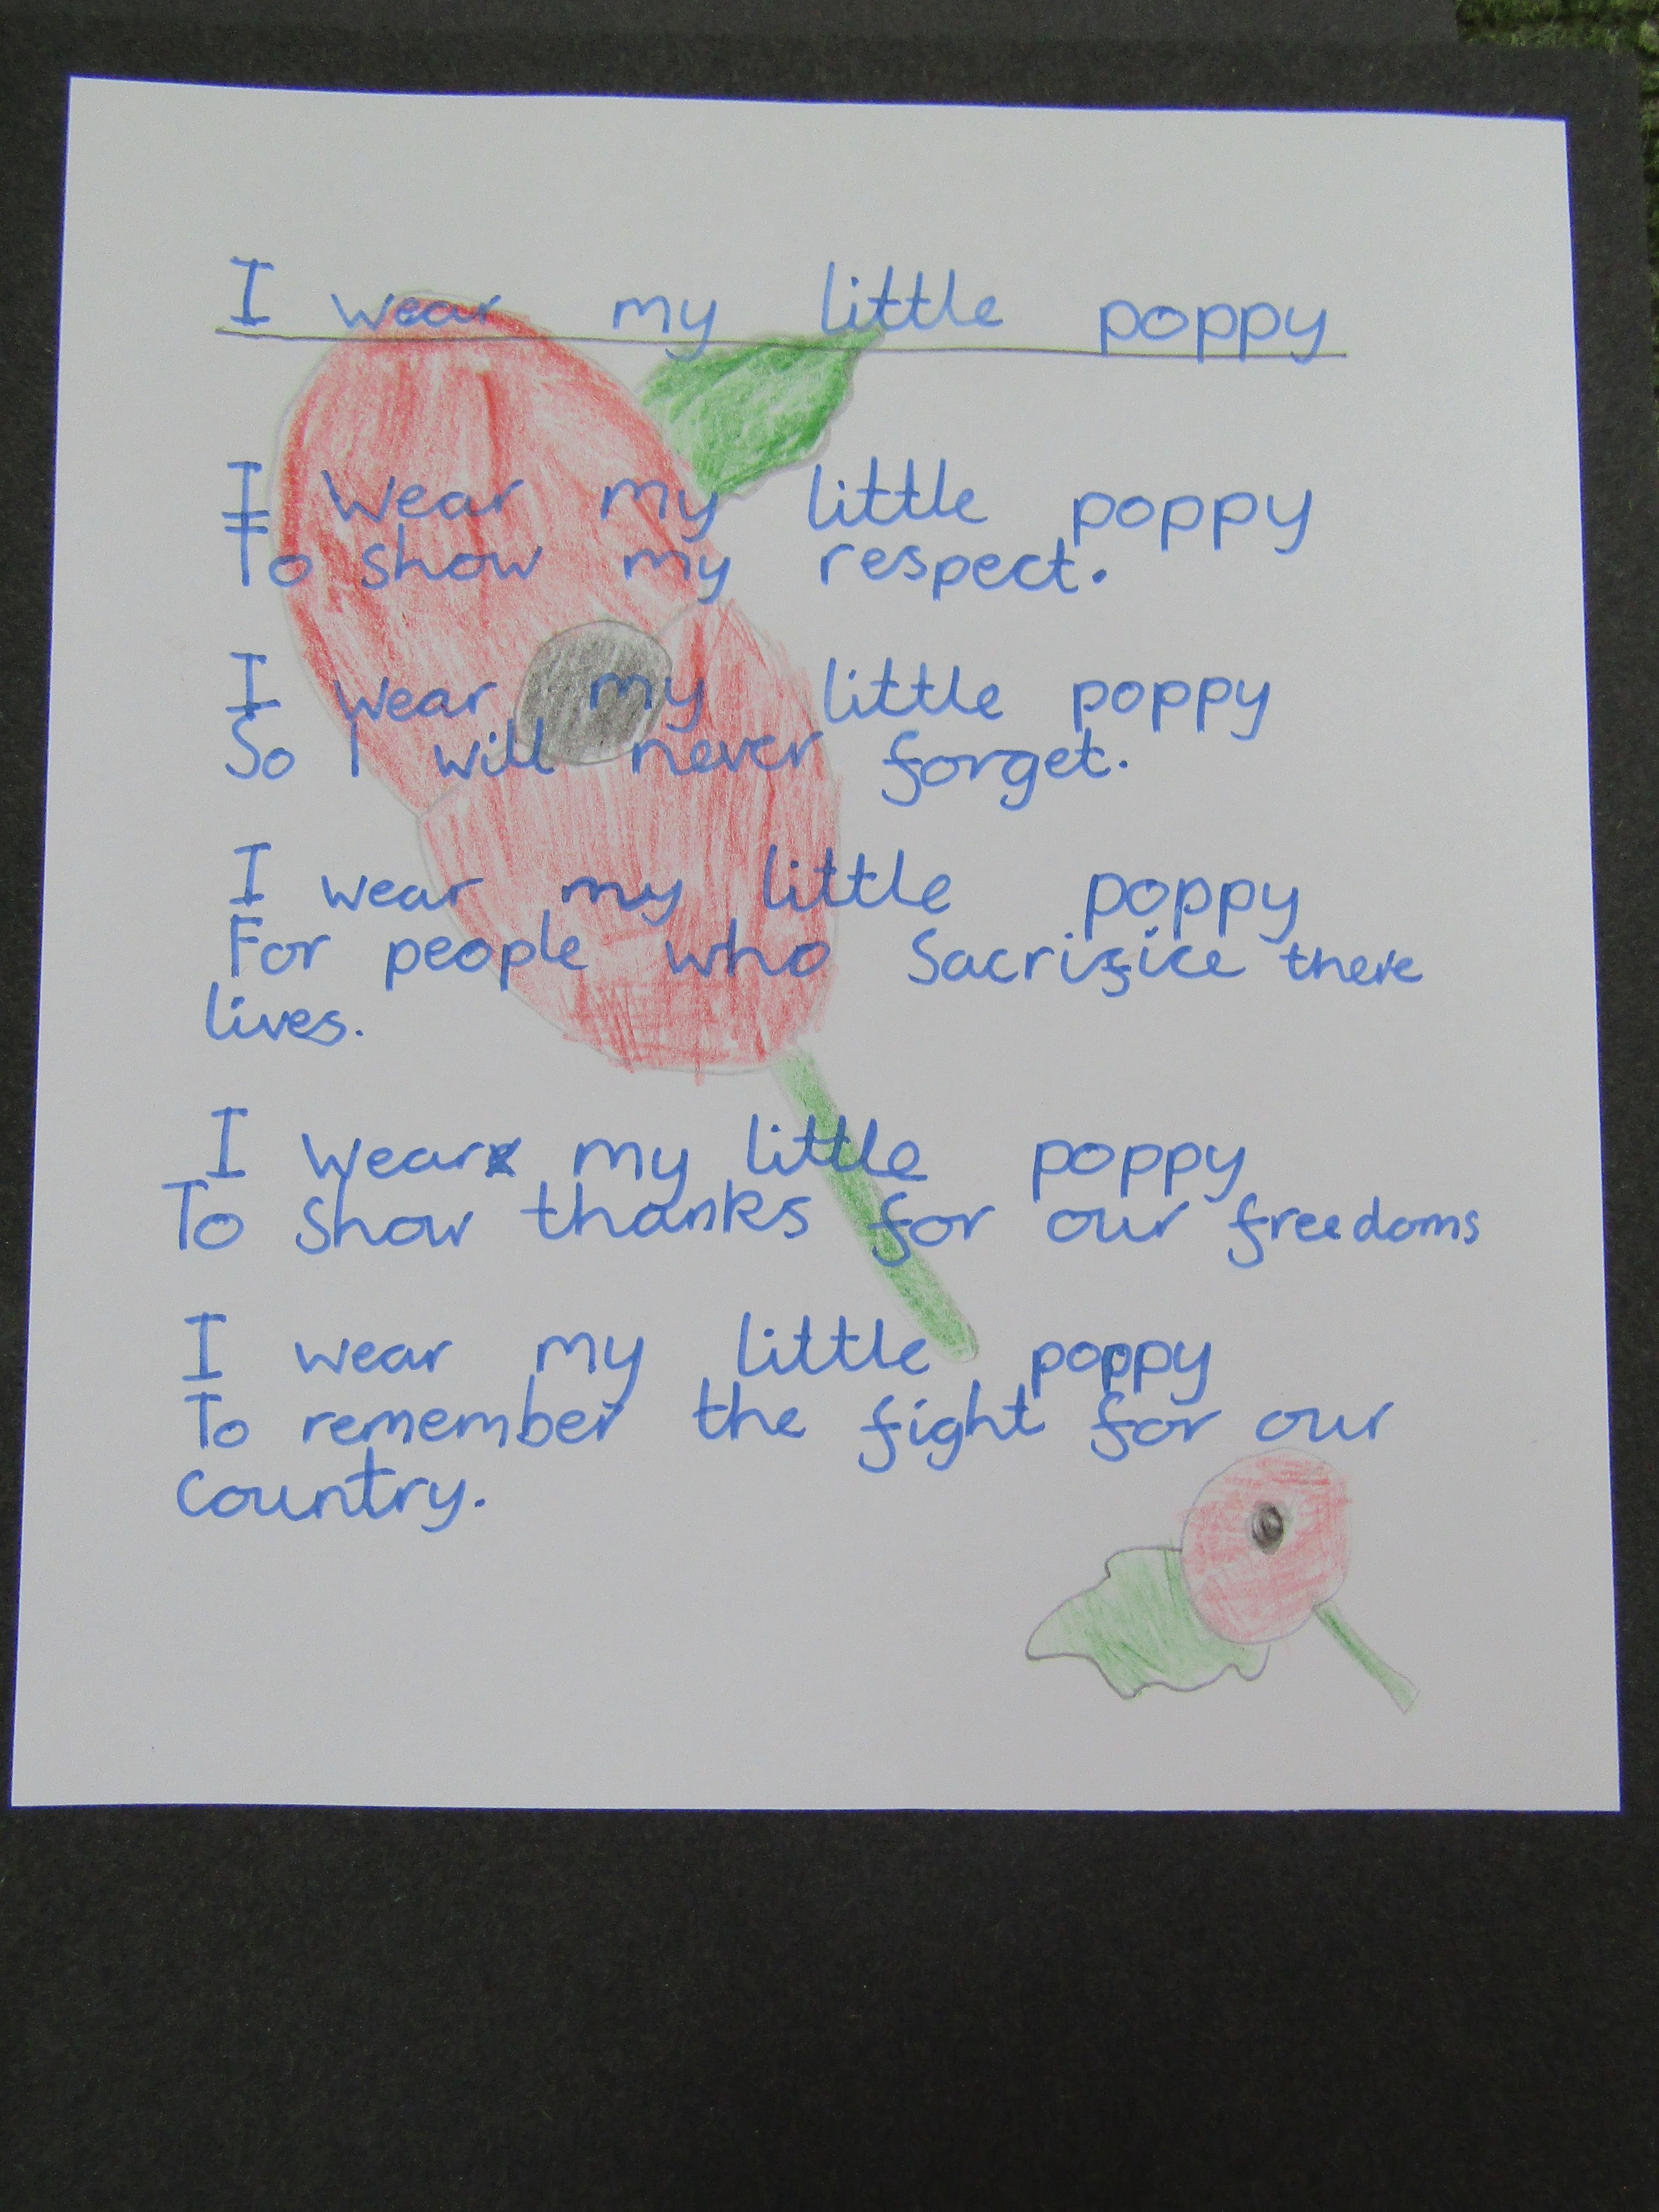 I wear my little poppy
I wear my little poppy
To show my respect.
I wear my little poppy
So I will never forget.
I wear my little poppy
For people who Sacrifice there
lives.
I wear my little poppy
To show thanks for our freedoms
I wear my little poppy
To remember the fight for our
country.